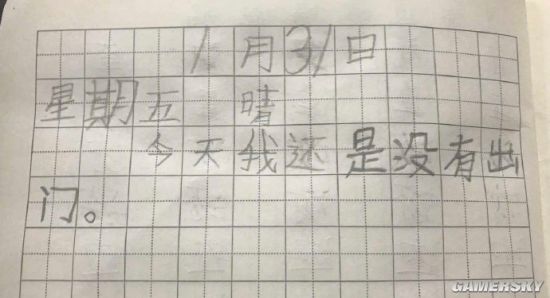 1月31日
星期五 晴
今天我还是没有出
门。
GAMERSKY